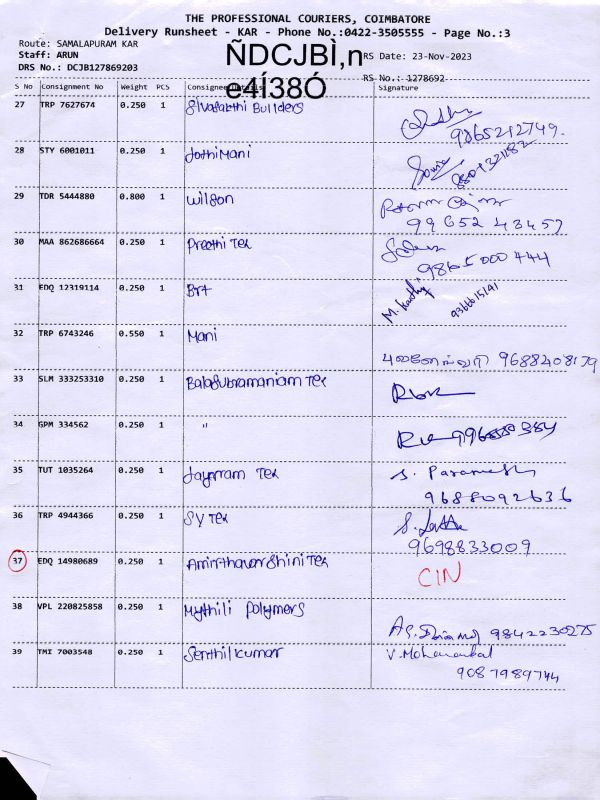 THE PROFESSIONAL COURIERS, COIMBATORE
Delivery Runsheet - KAR - Phone No.:0422-3505555 - Page No.:3
Route: SAMALAPURAM KAR
Staff: ARUN
DRS No.: DCJB127869203
ÑDCJBÌ‚n
e4Í38Ó
RS Date: 23-Nov-2023
RS No.: 1278692
S No Consignment No Weight PCS Consignee Details Signature
27 TRP 7627674 0.250 1 Sivasakthi Builders
9865212749.
28 STY 6001011 0.250 1 JothiMani
29 TDR 5444880 0.800 1 Wilson
99652 43457
30 MAA 862686664 0.250 1 Preethi Tex
9865000444
31 EDQ 12319114 0.250 1 Brt M. Karthi
32 TRP 6743246 0.550 1 Mani
9688408179
33 SLM 333253310 0.250 1 Balasubramaniam Tex
34 GPM 334562 0.250 1 "
35 TUT 1035264 0.250 1 Jayaram Tex
9688092636
36 TRP 4944366 0.250 1 SY Tex
9698833009
37 EDQ 14980689 0.250 1 AmirthavarShini Tex CIN
38 VPL 220825858 0.250 1 Mythili Polymers
9842230275
39 TMI 7003548 0.250 1 Senthilkumar
9087989744